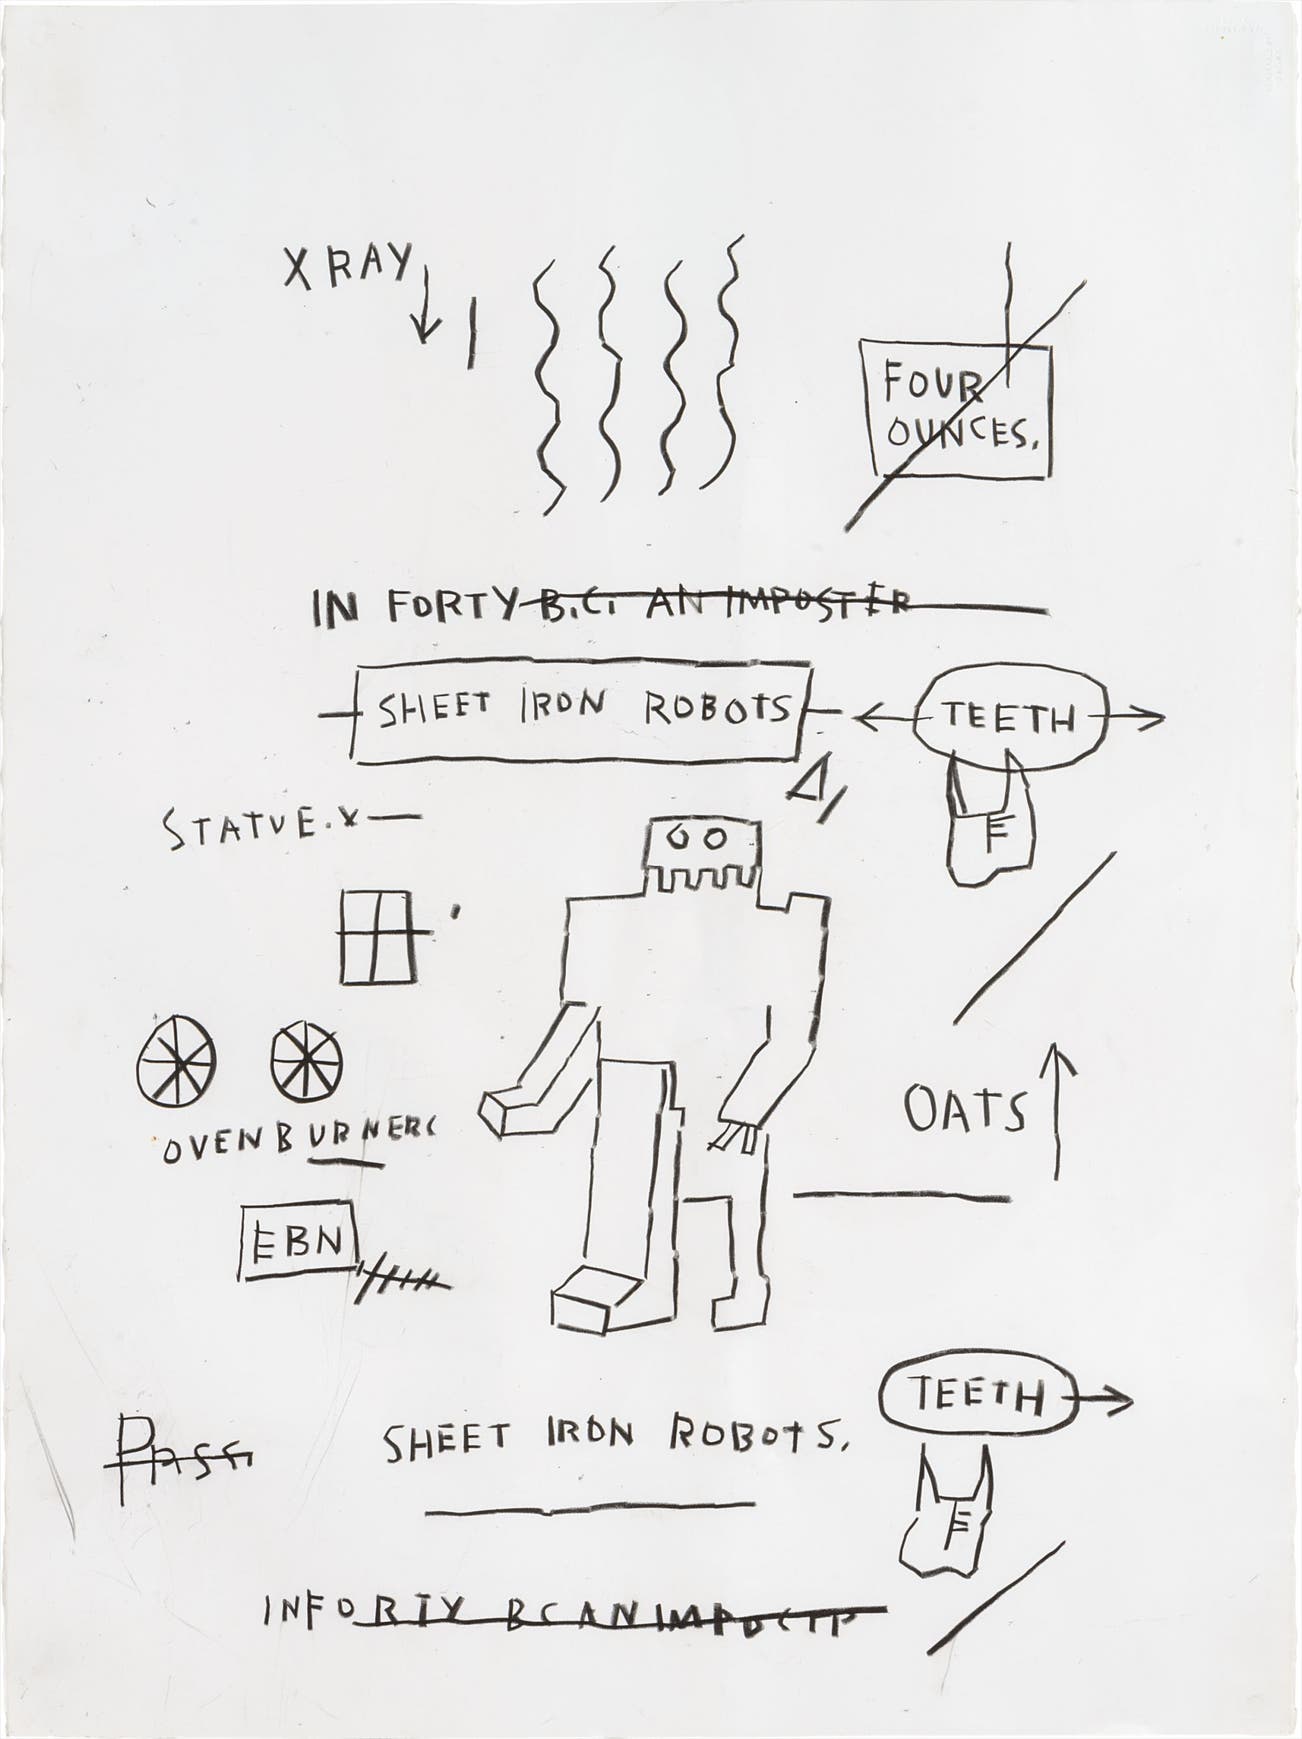 X RAY
FOUR
OUNCES.
IN FORTY B.C. AN IMPOSTER
SHEET IRON ROBOTS
TEETH
E
STATUE. X
OVEN BURNERS
OATS
EBN
TEETH
SHEET IRON ROBOTS.
E
IN FORTY BC AN